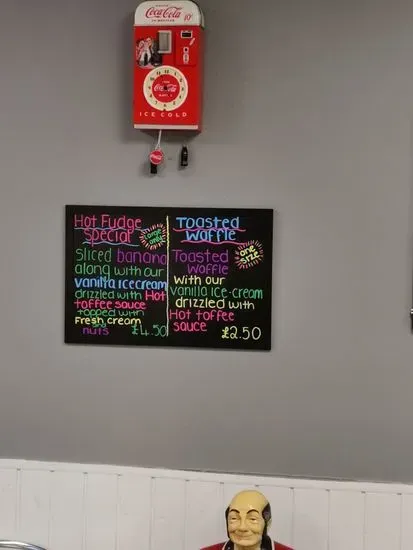 Coca-Cola
10¢
Coca-Cola
ICE COLD
Coca-Cola
Hot Fudge
Special
large
only
Sliced banana
along with our
vanilla icecream
drizzled with Hot
toffee sauce
topped with
Fresh cream
and
nuts £4.50
Toasted
Waffle
one
size
Toasted
Waffle
With our
vanilla ice-cream
drizzled with
Hot toffee
sauce £2.50